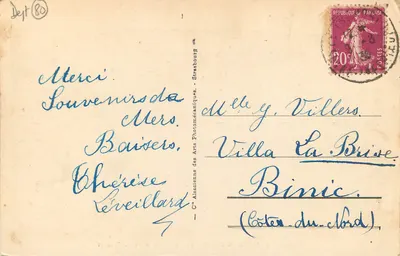 Dept 80
Merci.
Souvenirs de
Mers.
Baisers,
Thérèse
Léveillard
Cie Alsacienne des Arts Photomécaniques - Strasbourg
20
Mlle Y. Villers
Villa La Brise
Binic
(Côtes-du-Nord)